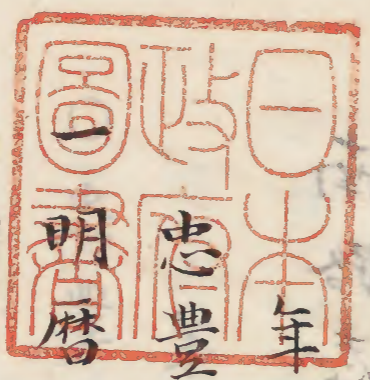 日本
政府
圖書
年
忠豊
一明暦